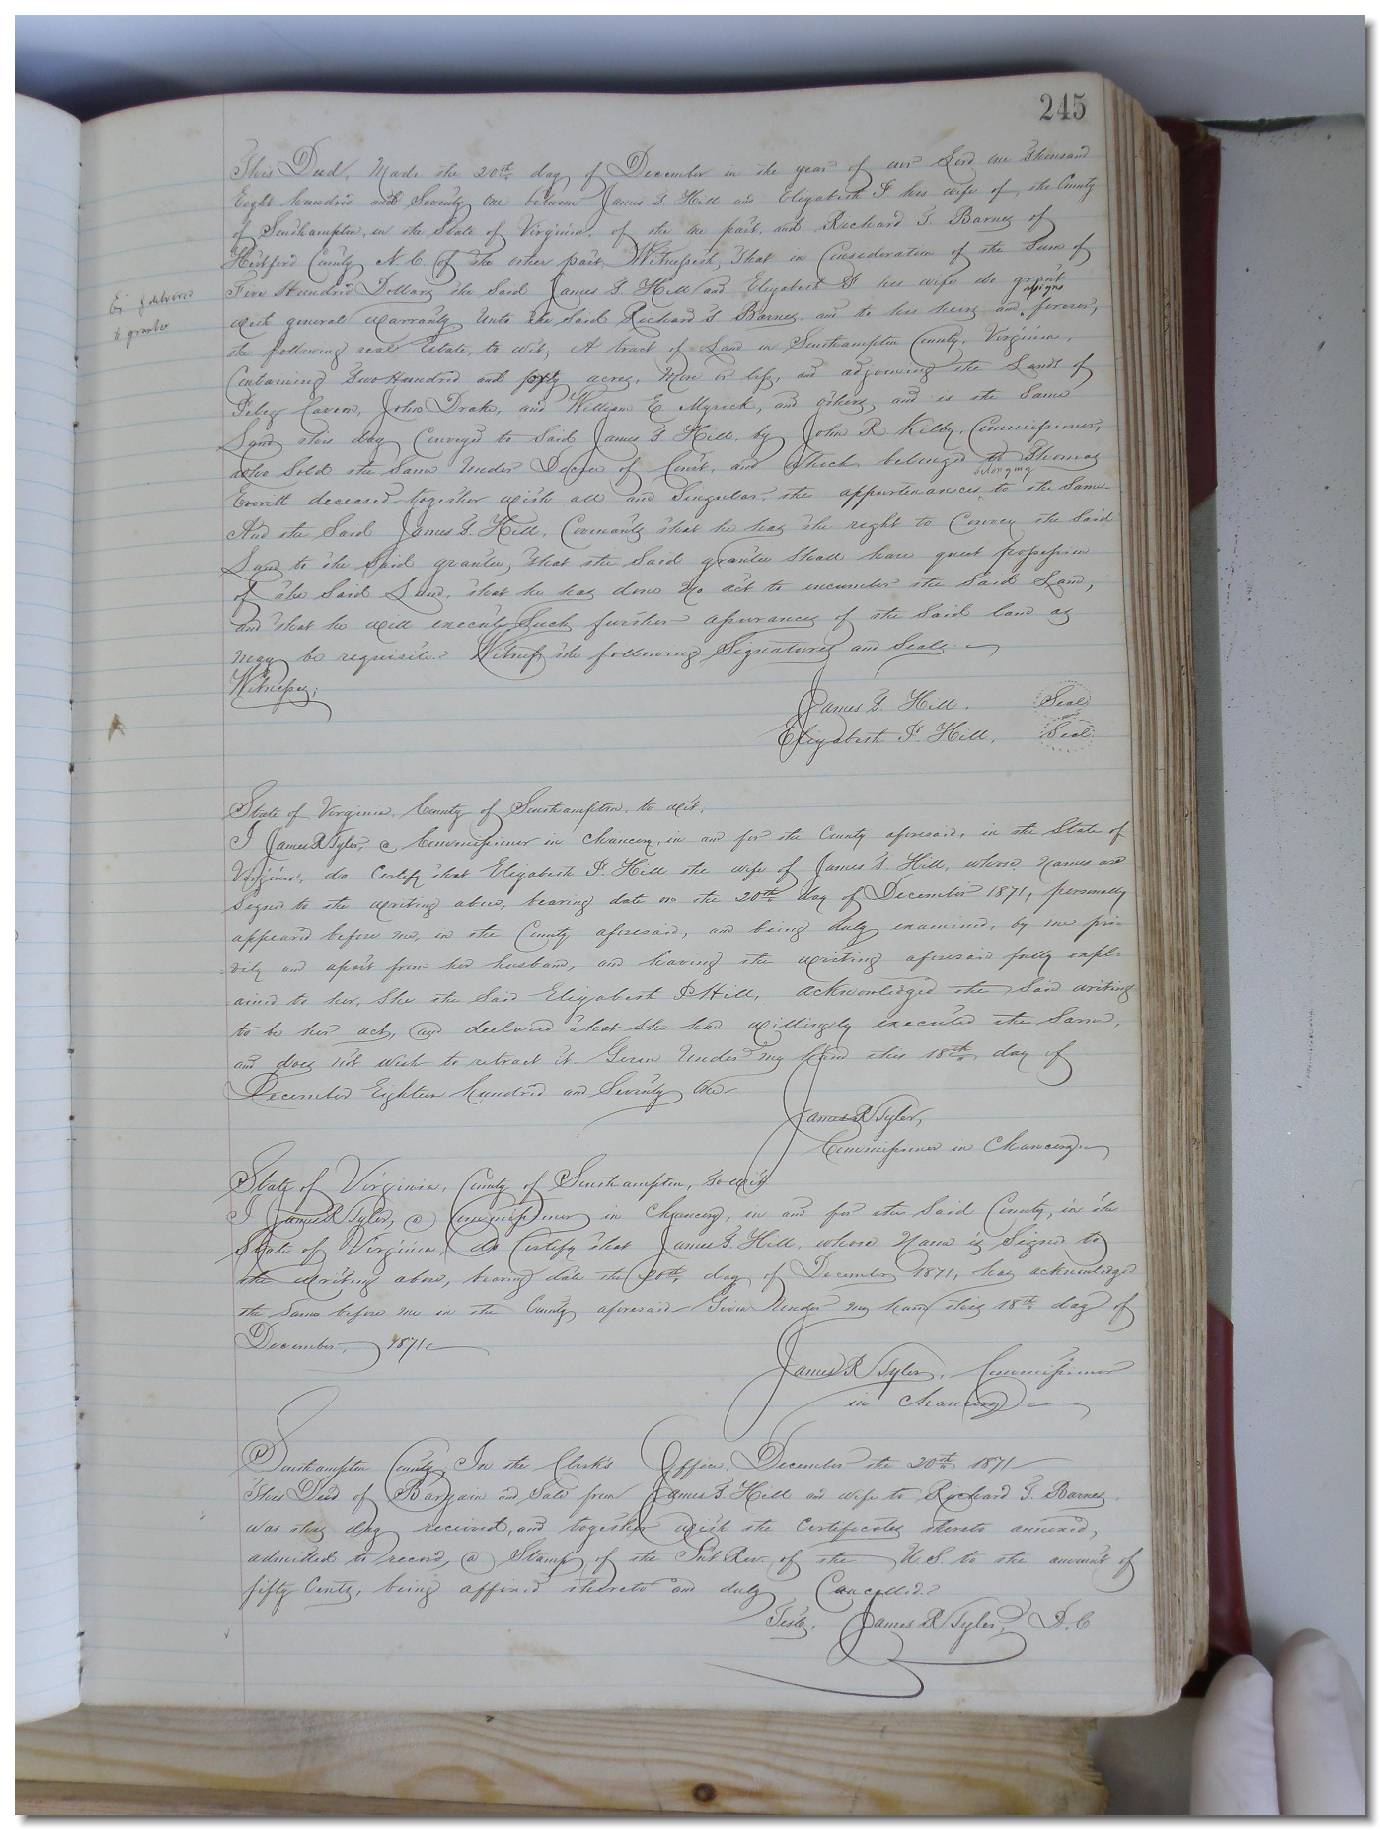 245
This Deed, Made the 20th day of December in the year of our Lord one Thousand
Eight hundred and Seventy One between James T. Hill and Elizabeth F. his wife of the County
of Southampton, in the State of Virginia, of the one part, and Richard T. Barnes of
Hertford County N. C. of the other part, Witnesseth, That in Consideration of the Sum of
Five Hundred Dollars the Said James T. Hill and Elizabeth F his wife do grant
assigns
with general warranty unto the Said Richard T Barnes and to his heirs and forever,
the following real Estate, to wit, A tract of Land in Southampton County, Virginia,
Containing Two Hundred and fifty acres, More or less, and adjoining the Lands of
John Drake, and William E Myrick, and others, and is the Same
Land this day Conveyed to Said James T. Hill by John R Kilby, Commissioner,
who Sold the Same Under Decree of Court, and Which belonged to Thomas
belonging
Everett deceased together with all and Singular, the appurtenances to the Same
And the Said James T. Hill, Covenants that he has the right to Convey the Said
Land to the Said grantee, that the Said grantee Shall have quiet possession
of the Said Land, that he has done no act to encumber the Said Land,
and that he will execute Such further assurances of the Said land as
may be requisite. Witness the following Signatures and Seals.
Witnesses;
James T. Hill. Seal
Elizabeth F. Hill. Seal
delivered
to grantee
State of Virginia, County of Southampton, to wit,
I James R Tyler, a Commissioner in Chancery, in and for the County aforesaid, in the State of
Virginia, do Certify that Elizabeth F. Hill the wife of James T. Hill, whose Names are
Signed to the writing above, bearing date on the 20th day of December 1871, personally
appeared before me, in the County aforesaid, and being duly examined, by me pri-
vily and apart from her husband, and having the writing aforesaid fully expl-
ained to her, She the Said Elizabeth F Hill, acknowledged the Said writing
to be her act, and declared that She had willingly executed the Same,
and does not wish to retract it. Given Under my hand this 18th day of
December Eighteen hundred and Seventy One
James R Tyler,
Commissioner in Chancery
State of Virginia, County of Southampton, to wit
I James R Tyler, a Commissioner in Chancery, in and for the Said County, in the
State of Virginia, do Certify that James T. Hill, whose Name is Signed to
the writing above, bearing date the 20th day of December 1871, has acknowledged
the Same before me in the County aforesaid Given Under my hand this 18th day of
December, 1871
James R Tyler, Commissioner
in Chancery
Southampton County, In the Clerk's Office, December the 20th 1871
This Deed of Bargain and Sale from James T. Hill and wife to Richard T. Barnes
was this day received, and together with the Certificates thereto annexed,
admitted to record, a Stamp of the Int Rev. of the U.S. to the amount of
fifty Cents, being affixed thereto and duly Cancelled.
Teste, James R Tyler, D.C